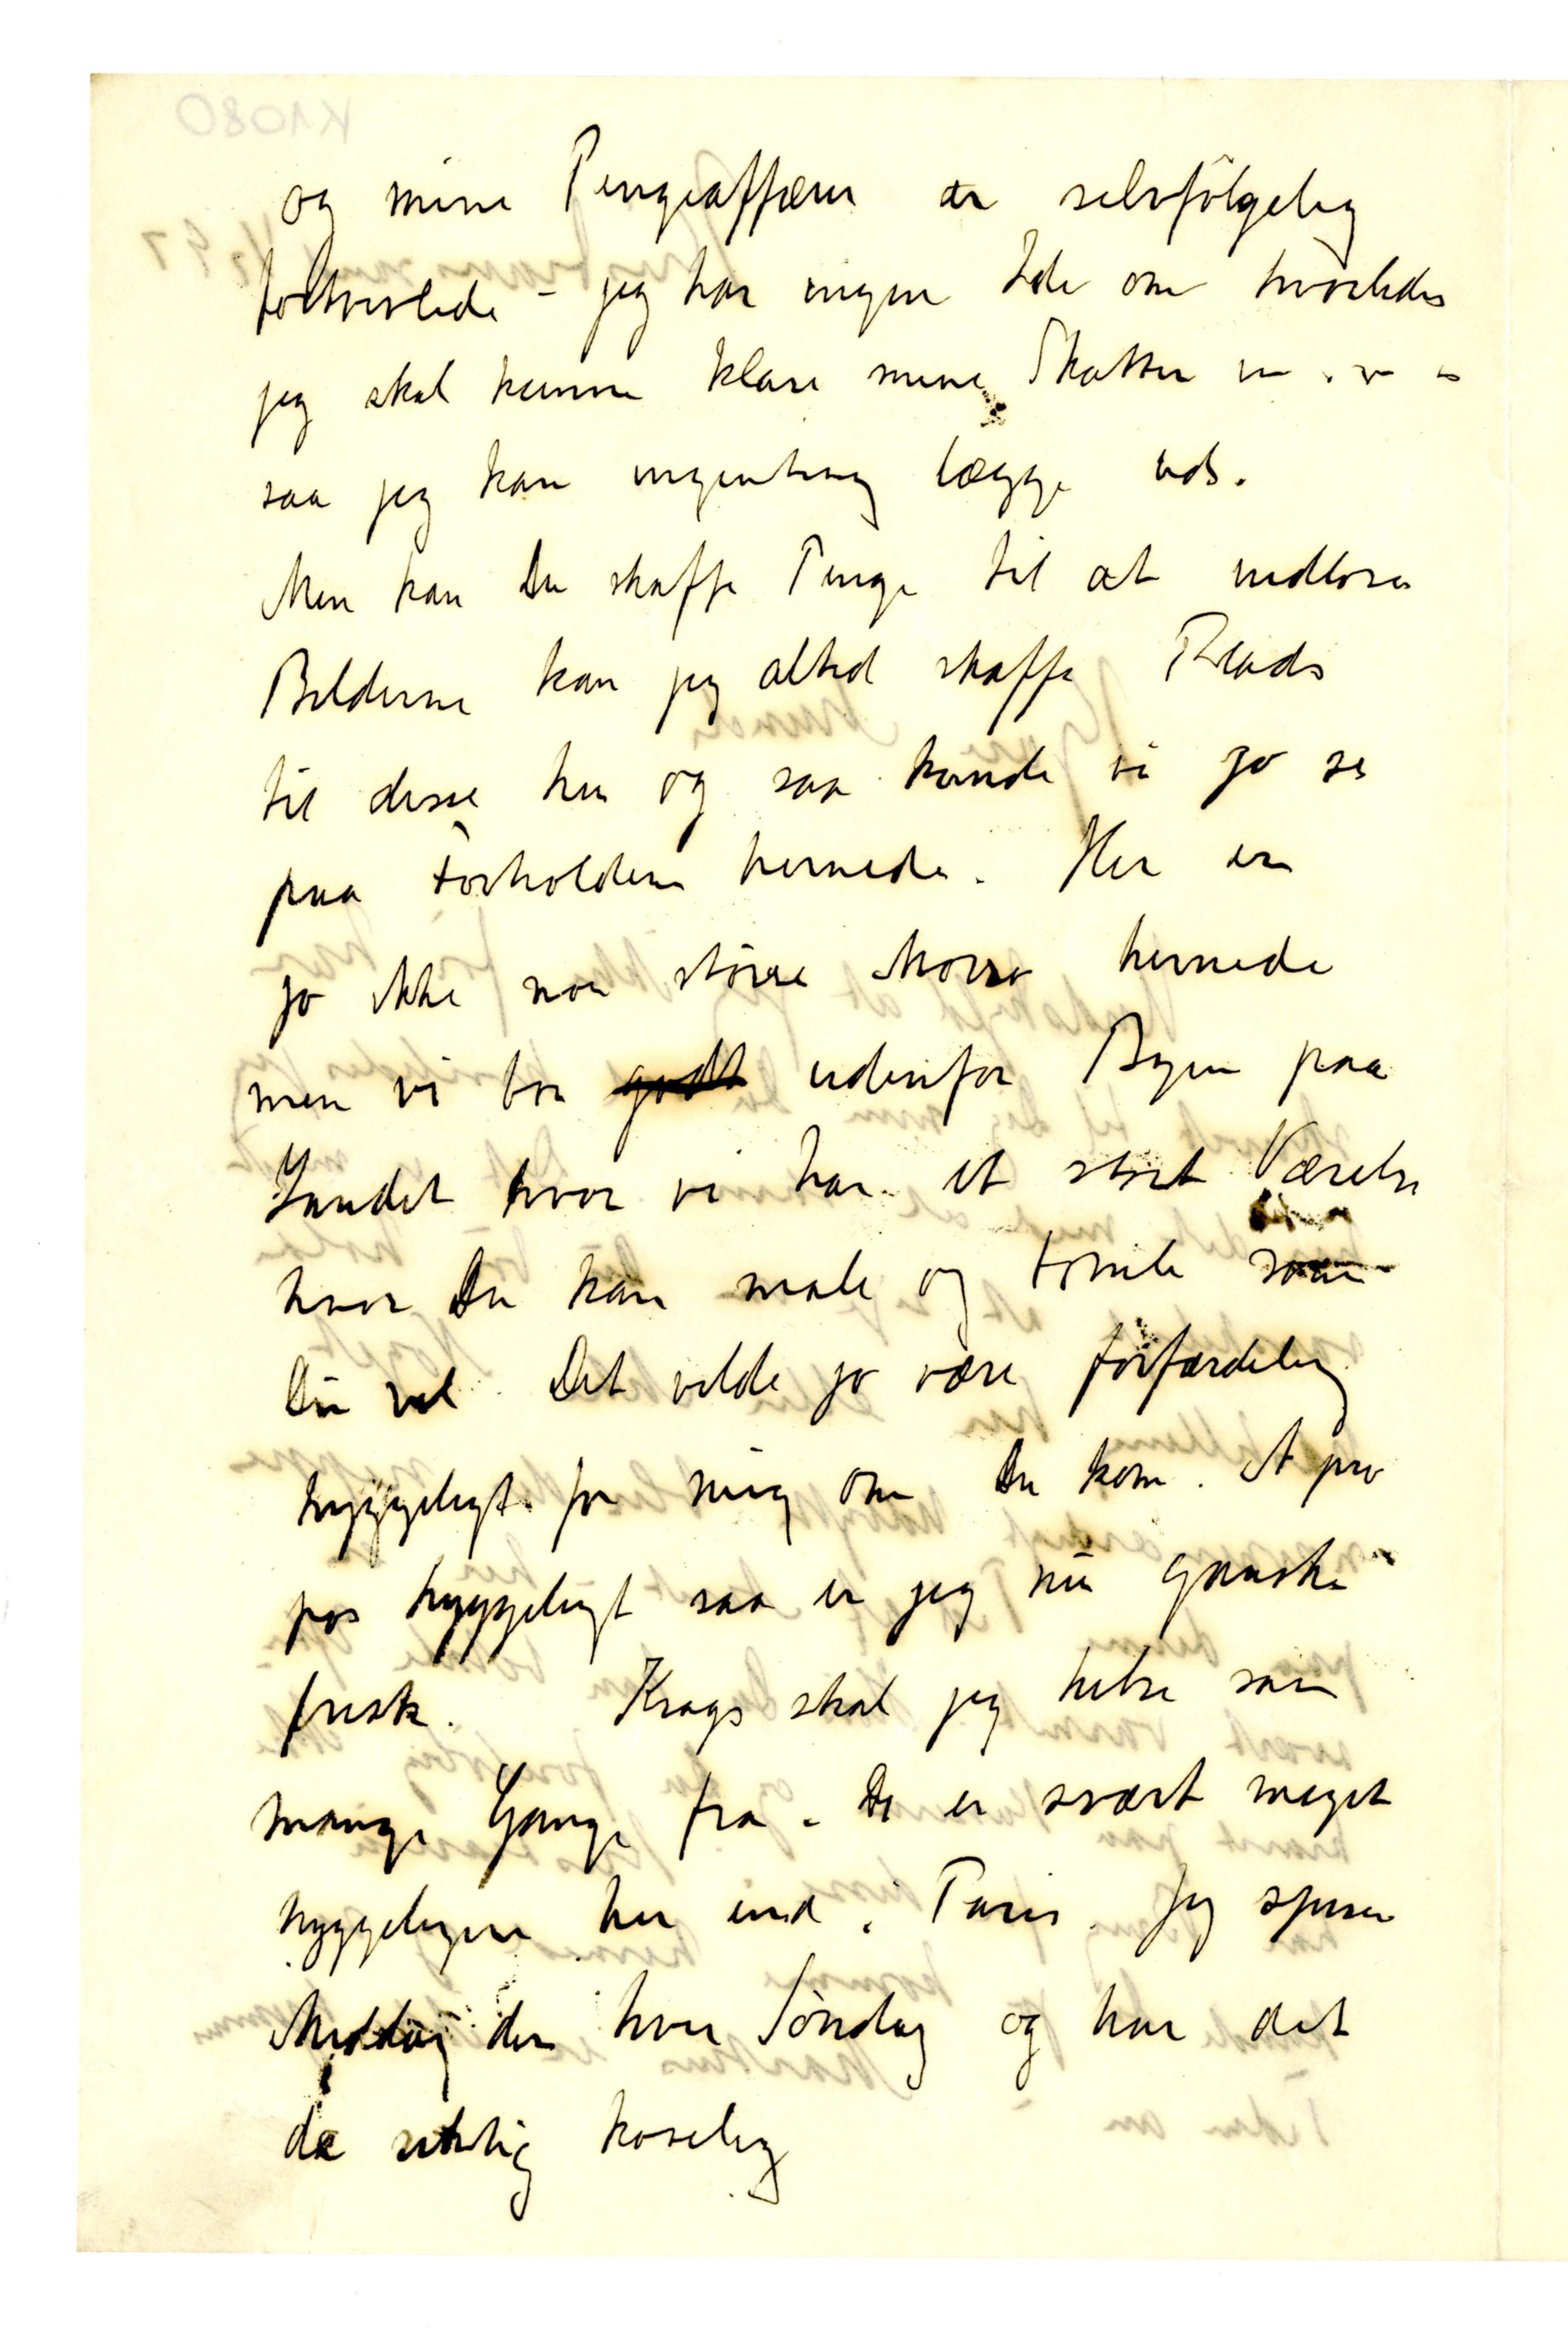 og mine Pengeaffærer er selvfølgelig
fortvivlede – jeg har ingen Ide om hvorledes
jeg skal kunne klare mine Skatter
saa jeg kan ingenting lægge ud.
Men kan Du skaffe Penge til at indløse
Bilderne kan jeg altid skaffe Plads
til disse her og saa kunde vi jo se
paa Forholdene hernede. Her er
jo ikke noe større Morro hernede
men vi bor godt udenfor Byen paa
Landet hvor vi har et stort Værelse
hvor Du kan male og tumle som
Du vil. Det vilde jo være forfærdelig
hyggeligt for mig om Du kom. A pro
pos hyggeligt saa er jeg nu ganske
frisk. Krags skal jeg hilse saa
mange Gange fra. De er svært meget
hyggeligere her end i Paris. Jeg spiser
Middag der hver Søndag og har det
da rigtig koselig